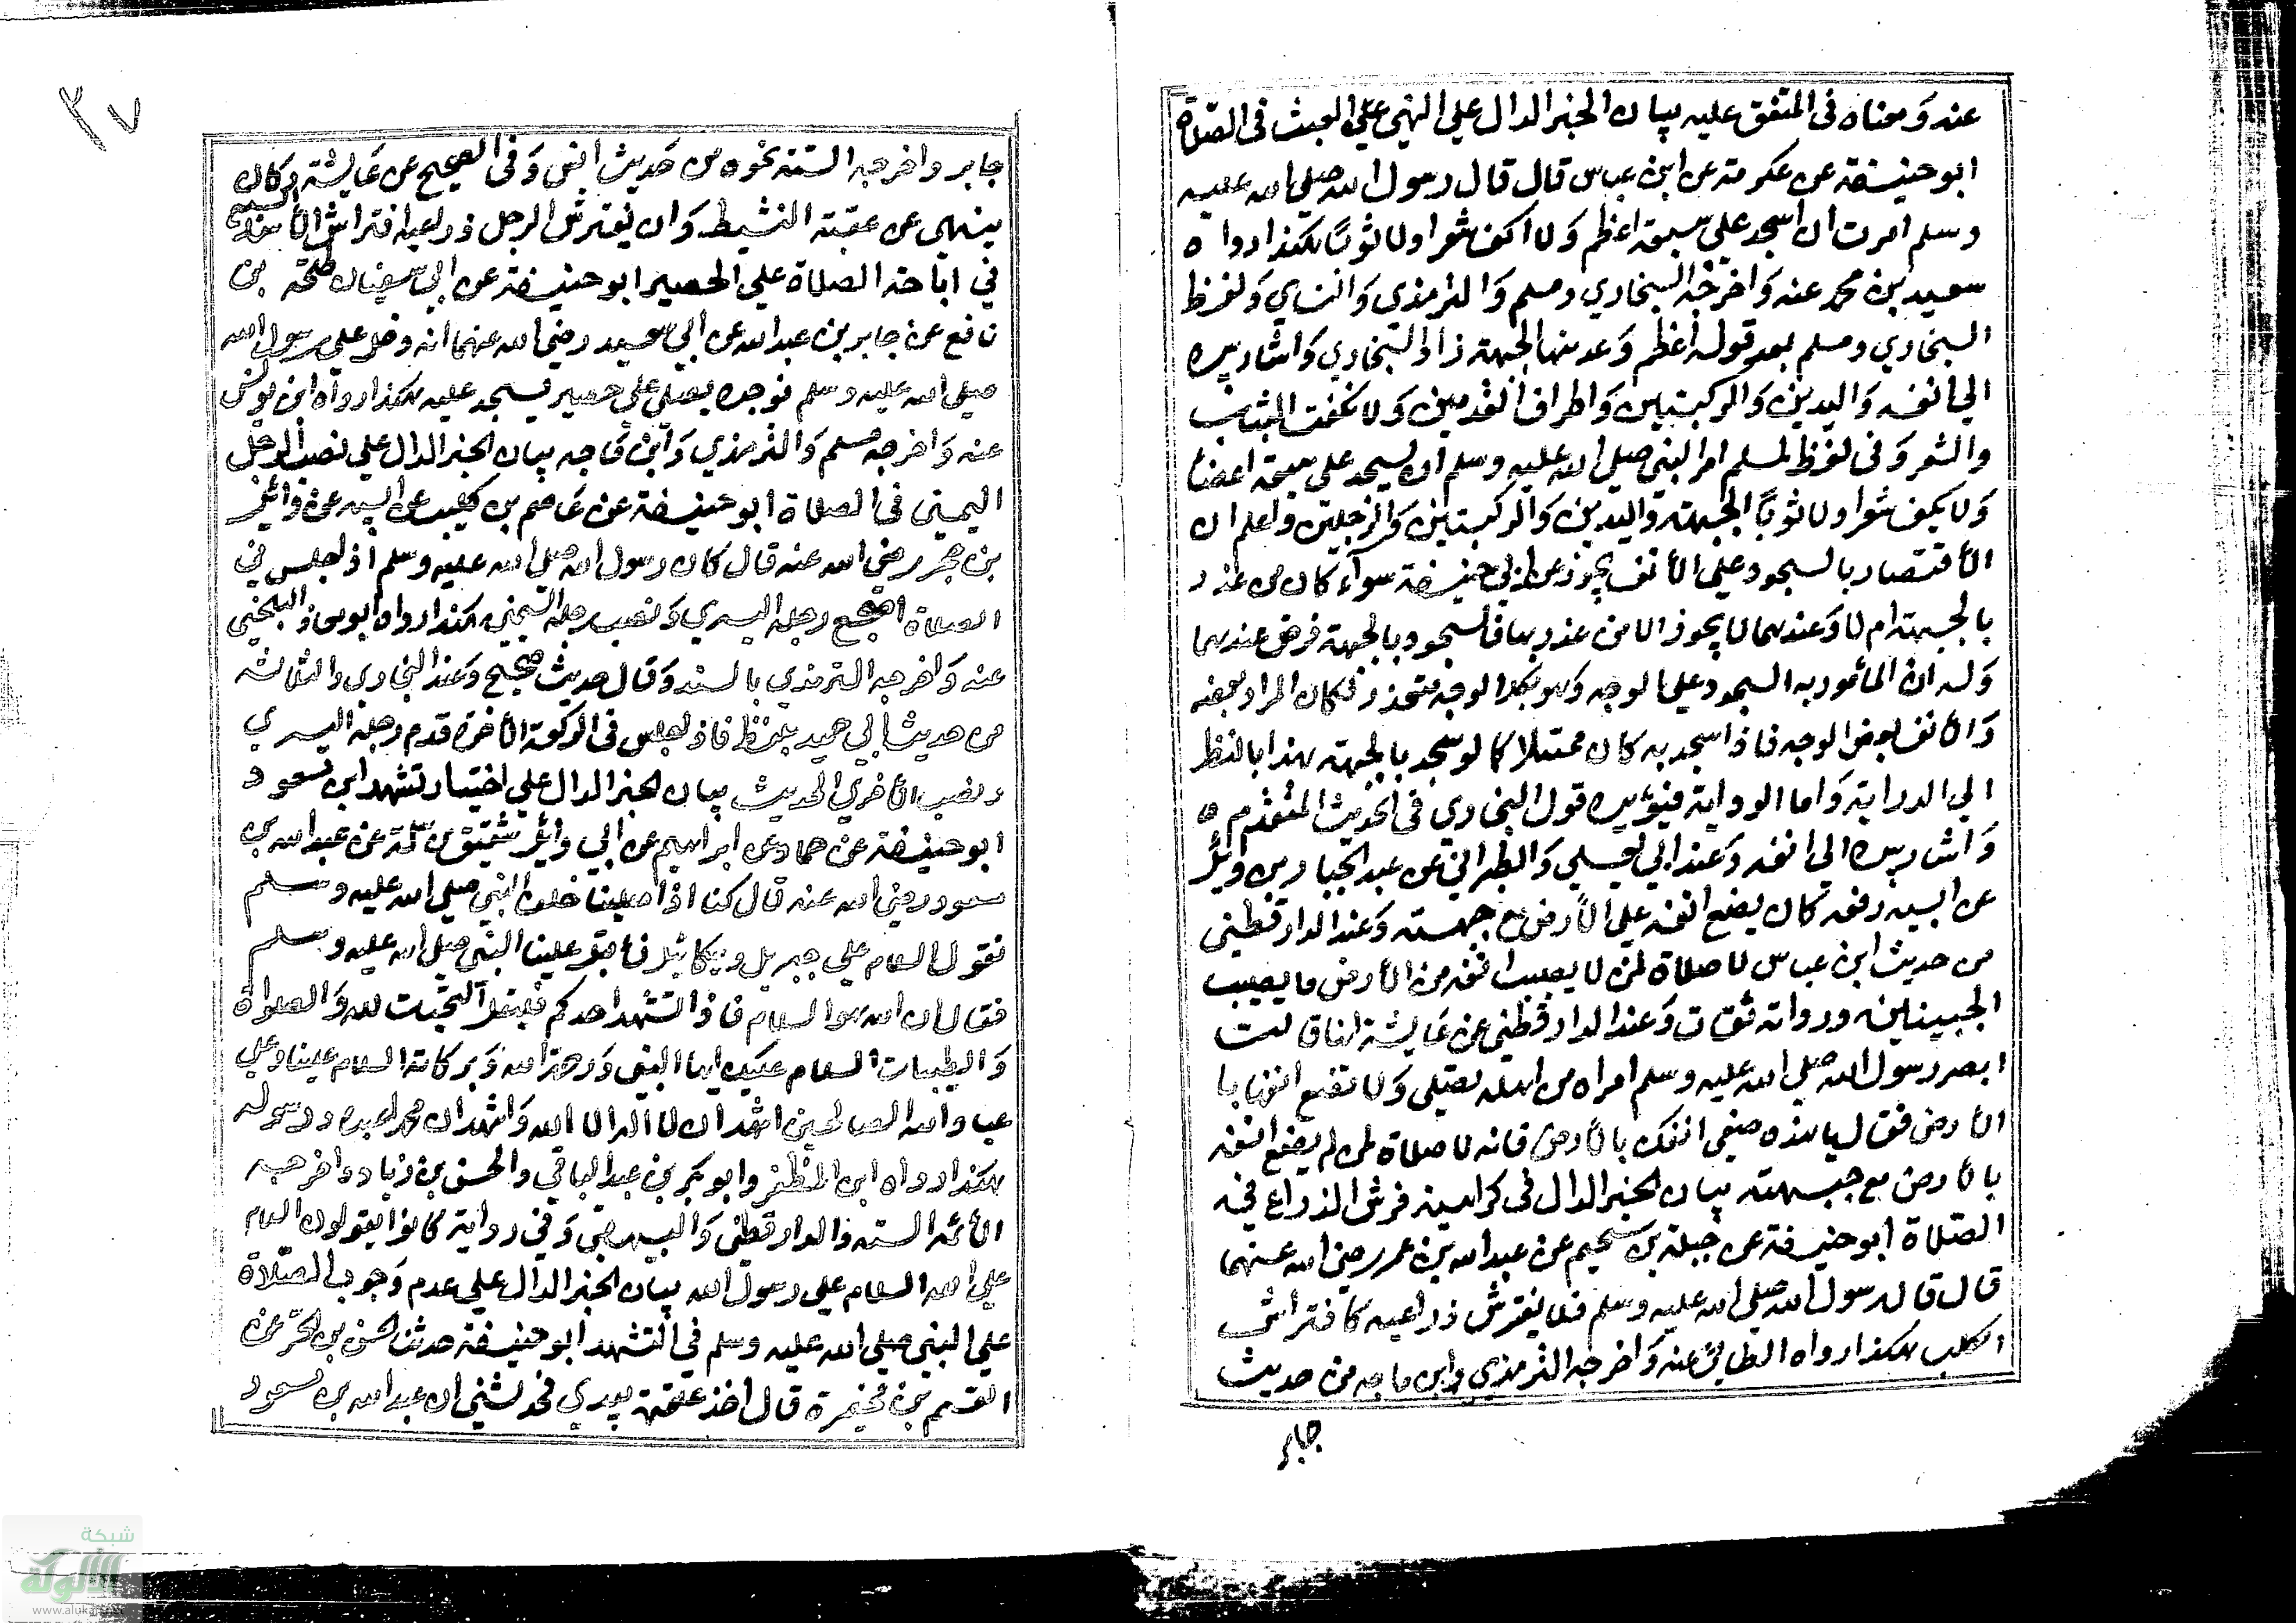 عنه ومعناه في المتفق عليه بيان الخبر الدال على النهي على العبث في الصلاة
ابو حنيفة عن عكرمة عن ابن عباس قال قال رسول الله صلى الله عليه
وسلم امرت ان اسجد على سبعة اعظم ولا اكف شعرا ولا ثوبا هكذا رواه
سعيد بن محمد عنه واخرجه البخاري ومسلم والترمذي والنساي ولفظ
البخاري ومسلم بعد قوله اعظم وعد منها الجبهة زاد البخاري واشار بيده
الى انفه واليدين والركبتين واطراف القدمين ولا نكفت الثياب
والشعر وفي لفظ لمسلم امر النبي صلى الله عليه وسلم ان يسجد على سبعة اعضا
ولا يكف شعرا ولا ثوبا الجبهة واليدين والركبتين والرجلين واعلم ان
الأقتصار بالسجود على الأنف يجوز عند ابي حنيفة سواء كان من عذر
بالجبهة ام لا وعندهما لا يجوز الا من عذر بها فالسجود بالجبهة فرض عندهما
وله ان المأمور به السجود على الوجه وهو بكل الوجه متعذر فكان المراد بعضه
والأنف بعض الوجه فاذا سجد به كان ممتثلا كما لو سجد بالجبهة هذا بالنظر
الى الدراية واما الرواية فيؤيده قول البخاري في الحديث المتقدم
واشار بيده الى انفه وعند ابي يعلى والطبراني عن عبد الجبار بن وائل
عن ابيه رفعه كان يضع انفه على الأرض مع جبهته وعند الدارقطني
من حديث ابن عباس لا صلاة لمن لا يصيب انفه من الأرض ما يصيب
الجبينين ورواته ثقات وعند الدارقطني عن عايشة انها قالت
ابصر رسول الله صلى الله عليه وسلم امراه من اهله تصلي ولا تضع انفها با
الأرض فقال يا هذه ضعي انفك بالأرض فانه لا صلاة لمن لم يضع انفه
بالأرض مع جبهته بيان الخبر الدال في كراهية فرش الذراع في
الصلاة ابو حنيفة عن جبلة بن سحيم عن عبد الله بن عمر رضي الله عنهما
قال قال رسول الله صلى الله عليه وسلم فلا يفترش ذراعيه كافتراش
الكلب هكذا رواه الطائي عنه واخرجه الترمذي وابن ماجه من حديث
جابر
٣٧
جابر واخرجه الستة نحوه من حديث انس وفي الصحيح عن عايشة وكان
ينهى عن عقبة الشيطان وان يفترش الرجل ذراعيه افتراش السبع
في اباحة الصلاة على الحصير ابو حنيفة عن ابي سفيان طلحة بن
نافع عن جابر بن عبد الله عن ابي سعيد رضي الله عنهما انه دخل على رسول الله
صلى الله عليه وسلم فوجده يصلي على حصير يسجد عليه هكذا رواه ابن يونس
عنه واخرجه مسلم والترمذي وابن ماجه بيان الخبر الدال على نصب الرجل
اليمنى في الصلاة ابو حنيفة عن عاصم بن كليب عن ابيه عن وائل
بن حجر رضي الله عنه قال كان رسول الله صلى الله عليه وسلم اذا جلس في
الصلاة اضجع رجله اليسرى ونصب رجله اليمنى هكذا رواه ابو معاذ البلخي
عنه واخرجه الترمذي بالسند وقال حديث صحيح وعند البخاري والثلاثه
من حديث ابي حميد بلفظ فاذا جلس في الركعة الأخرة قدم رجله اليسرى
ونصب الأخرى الحديث بيان الخبر الدال على اختيار تشهد ابن مسعود
ابو حنيفة عن حماد عن ابراهيم عن ابي وائل شقيق بن سلمة عن عبد الله بن
مسعود رضي الله عنه قال كنا اذا صلينا خلف النبي صلى الله عليه وسلم
نقول السلام على جبريل وميكائيل فأقبل علينا النبي صلى الله عليه وسلم
فقال ان الله هو السلام فاذا تشهد احدكم فليقل التحيات لله والصلوات
والطيبات السلام عليك ايها النبي ورحمة الله وبركاته السلام علينا وعلى
عباد الله الصالحين اشهد ان لا اله الا الله واشهد ان محمدا عبده ورسوله
هكذا رواه ابن المظفر وابو بكر بن عبد الباقي والحسن بن زياد واخرجه
الأئمه الستة والدارقطني والبيهقي وفي رواية كانوا يقولون السلام
على الله السلام على رسول الله بيان الخبر الدال على عدم وجوب الصلاة
على النبي صلى الله عليه وسلم في التشهد ابو حنيفة حدثنا الحسن بن الحر عن
القسم بن مخيمرة قال اخذ علقمة بيدي فحدثني ان عبد الله بن مسعود
شبكة
الألوكة